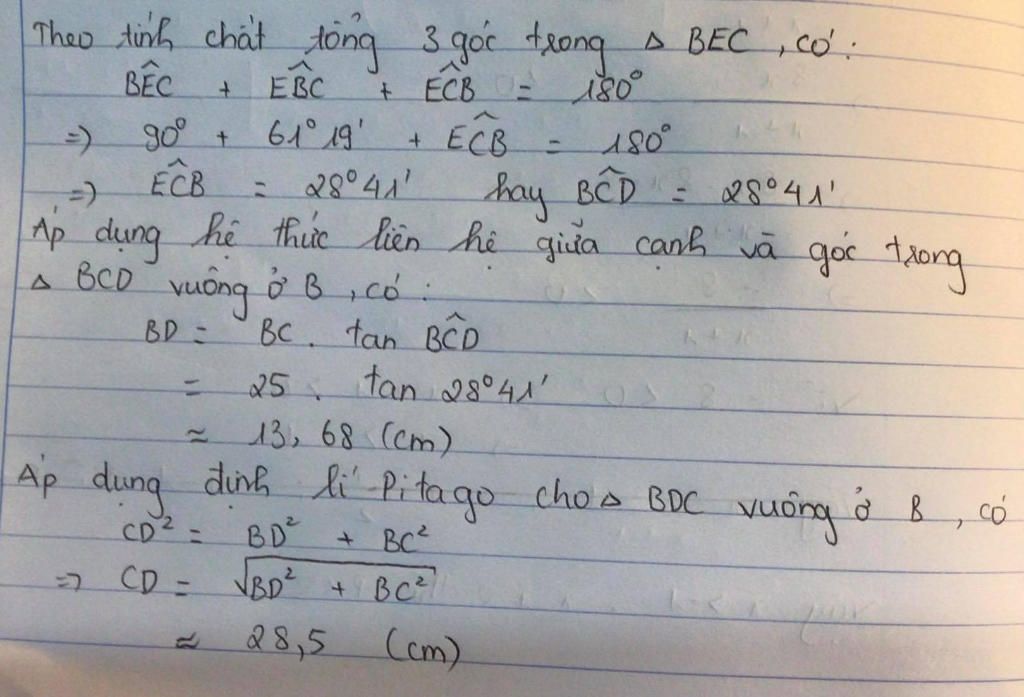 Theo tính chất tổng 3 góc trong Δ BEC, có:
BÊC + EB̂C + EĈB = 180°
=> 90° + 61°19' + EĈB = 180°
=> EĈB = 28°41' hay BĈD = 28°41'
Áp dụng hệ thức liên hệ giữa cạnh và góc trong
Δ BCD vuông ở B, có:
BD = BC. tan BĈD
= 25. tan 28°41'
≈ 13,68 (cm)
Áp dụng định lí Pitago cho Δ BDC vuông ở B, có
CD² = BD² + BC²
=> CD = √(BD² + BC²)
≈ 28,5 (cm)